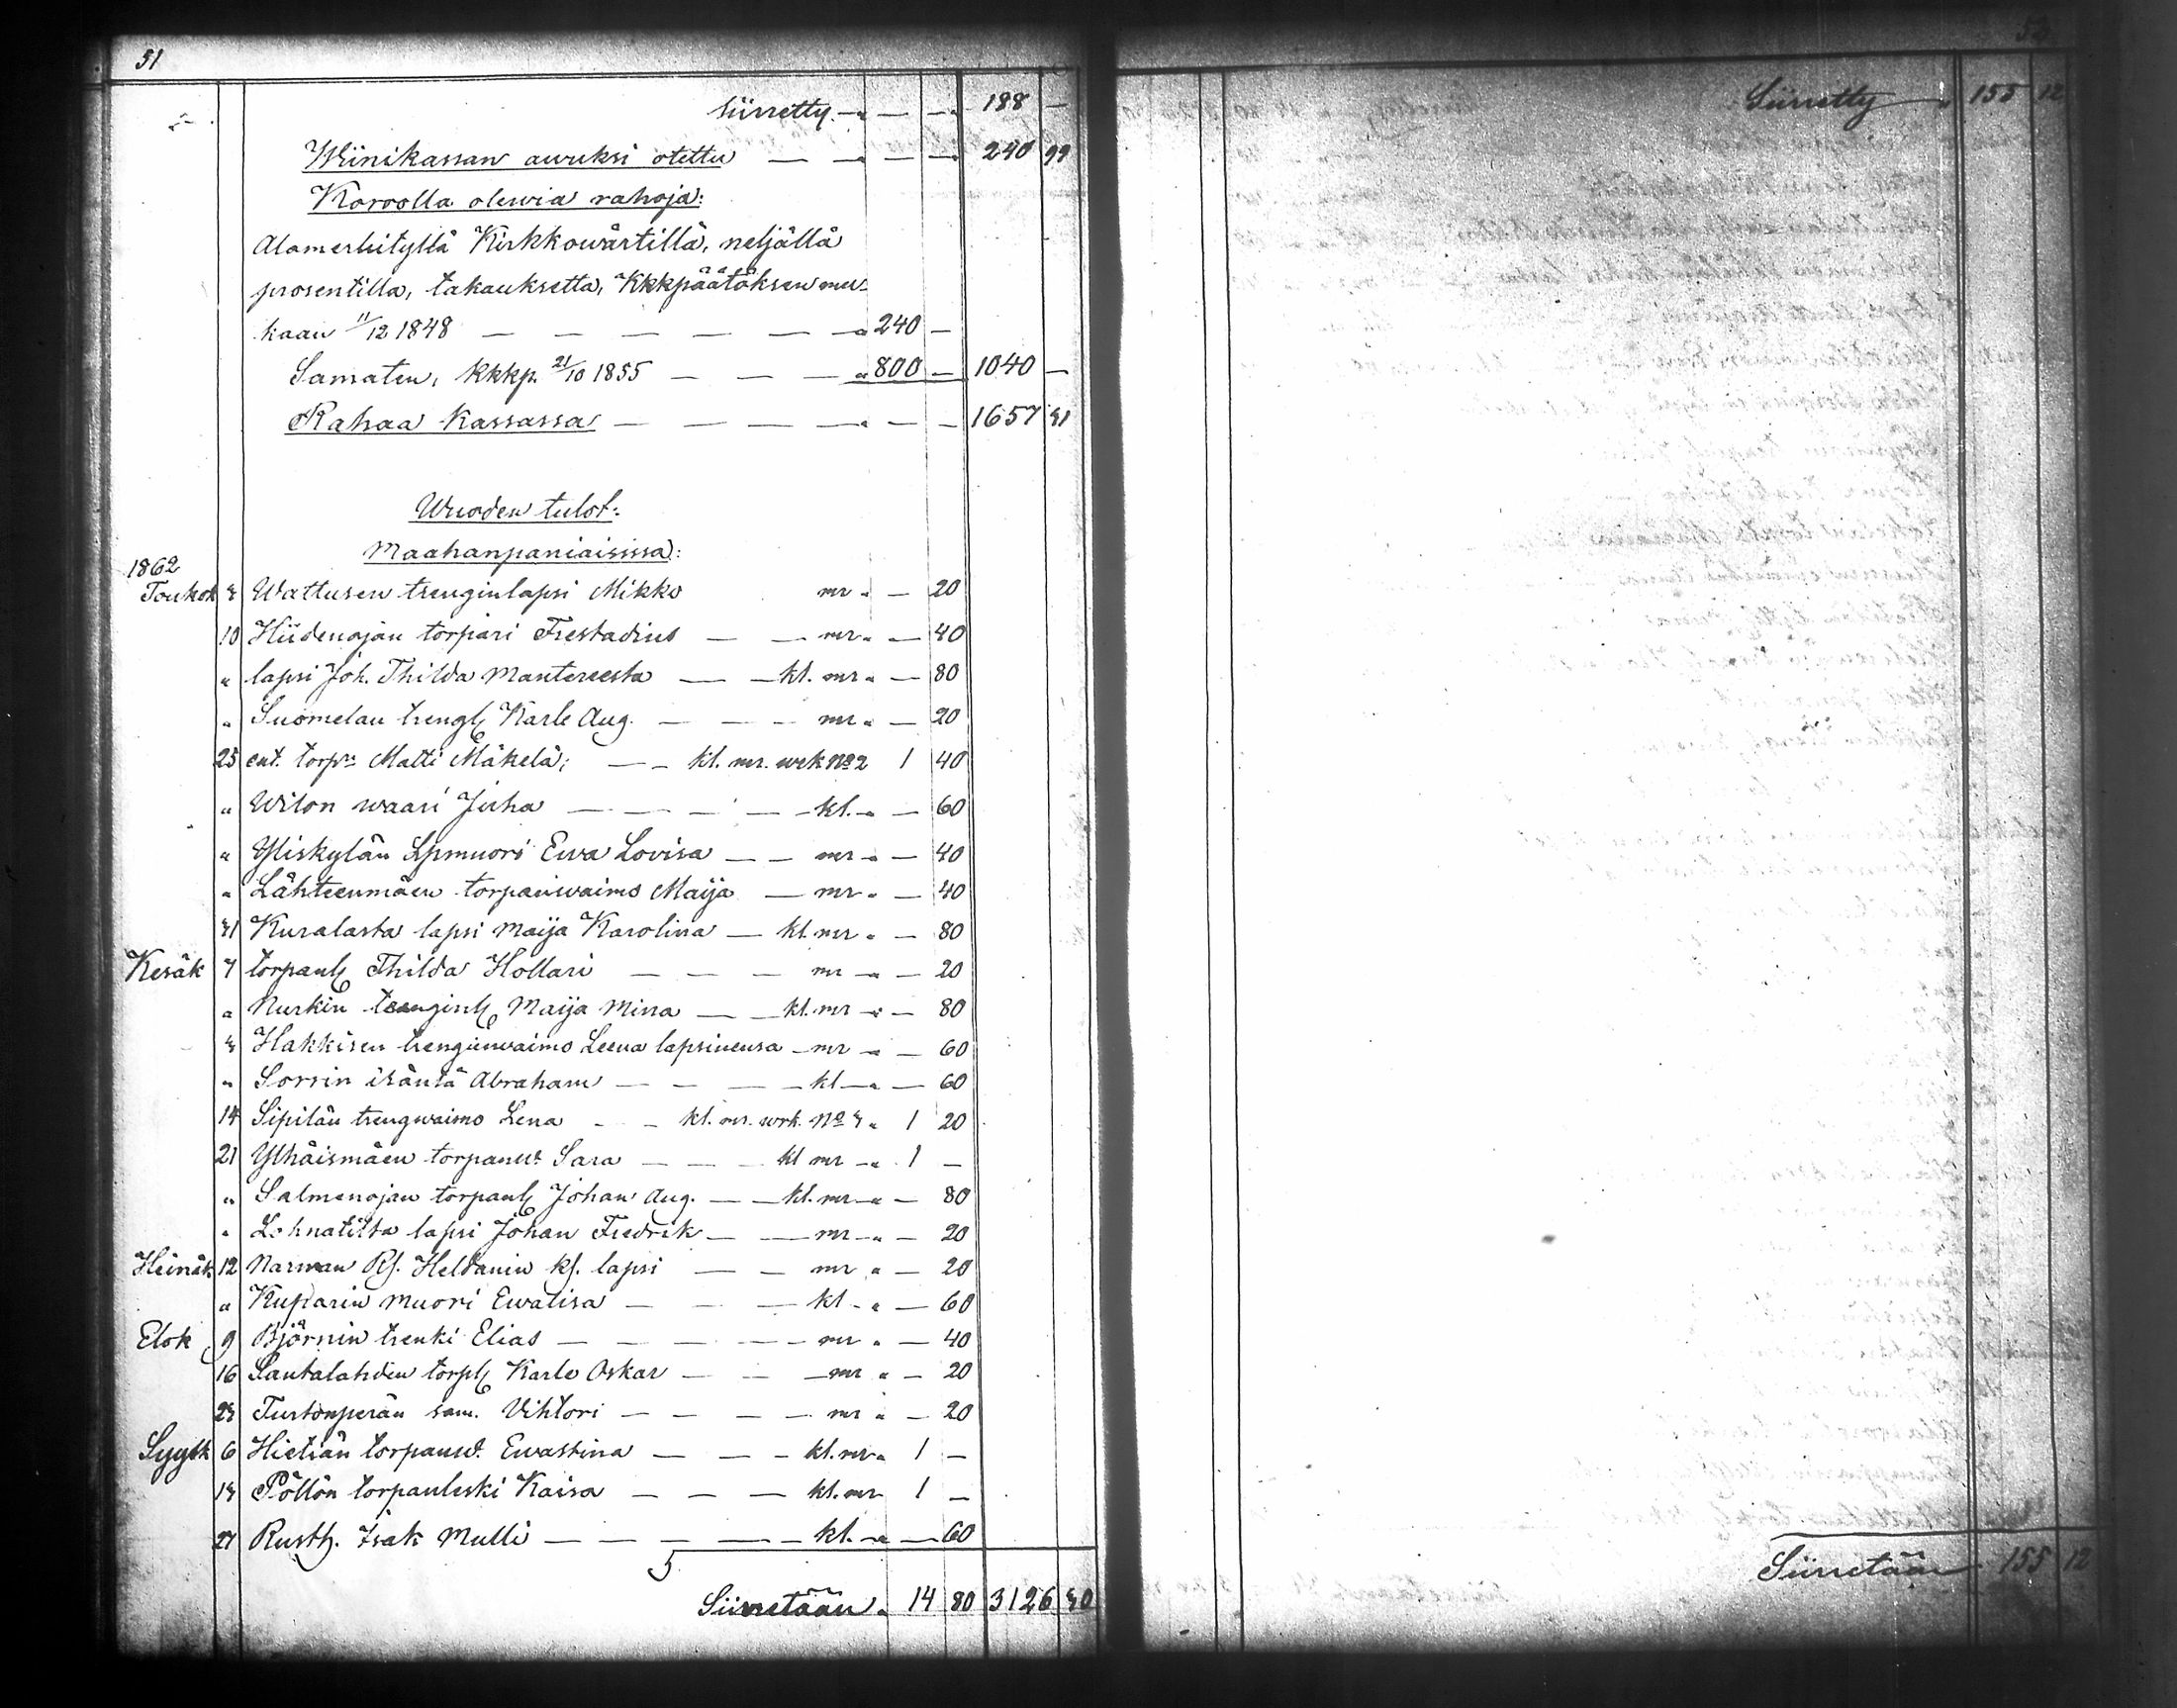 51
Siirretty " 188 —
Wiinikassan awuksi otettu — — — 240 99
Korvolla olewia rahoja:
Alamerkityllä Kirkkowärtillä, neljällä
prosentilla, takauksetta, Kkkpäätöksen mu-
kaan 11/12 1848 — — — — — " 240 —
Samaten, Kkkp. 21/10 1855 — — — " 800 — 1040 —
Rahaa Kassassa — — — — " — — 1657 31
Wuoden tulot:
Maahanpaniaisissa:
1862
Toukok 3 Wattusen trenginlapsi Mikko mr " — 20
10 Hiidenojan torpari Frestadius — — mr " — 40
" lapsi Joh. Thilda Mantereesta — — kl. mr " — 80
" Suomelan trengl. Karle Aug. — — — mr " — 20
25 ent. torp:ri Matti Mäkelä; — — kl. mr. wrk No 2 1 40
" Wilon waari Juha — — — — kl. " — 60
" Yliskylän Spmuori Ewa Lovisa — — mr " — 40
" Lähteenmäen torpanwaimo Maija — mr " — 40
31 Kuralasta lapsi Maija Karolina — kl. mr " — 80
Kesäk 7 torpanl. Thilda Hollari — — — mr " — 20
" Nurkin trenginl. Maija Mina — — kl. mr " — 80
" Hakkisen trenginwaimo Leena lapsinensa — mr " — 60
" Sorrin isäntä Abraham — — — — kl — " — 60
14 Sipilän trengwaimo Lena — — kl. mr. wrk. No 3 " 1 20
21 Ylhäismäen torpanw. Sara — — — kl mr — " 1 —
" Salmenojan torpanl. Johan Aug. — — kl. mr — " — 80
" Lohnatilta lapsi Johan Fredrik — — mr — " — 20
Heinäk 12 Narwan Rs. Heldanin ks. lapsi — — mr " — 20
" Kuparin muori Ewalisa — — — kl — " — 60
Elok 9 Björnin trenki Elias — — — — — mr " — 40
16 Santalahden torpl. Karle Oskar — — — mr " — 20
23 Turtonperän sam. Vihtori — — — — mr " — 20
Syysk 6 Hietiän torpanw. Ewastina — — — kl. mr " 1 —
13 Pöllön torpanleski Kaisa — — — kl. mr 1 —
27 Rusth. Isak Mulli — — — — — kl. — " — 60
Siirretään " 14 80 3126 30
52
Siirretty " 155 12
Siirretään 155 12